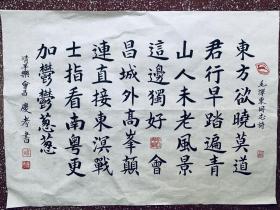 毛澤東同志詩
東方欲曉莫道
君行早踏遍青
山人未老風景
這邊獨好會
昌城外高峯顛
連直接東溟戰
士指看南粵更
加鬱鬱葱葱
清平樂會昌 慶考書